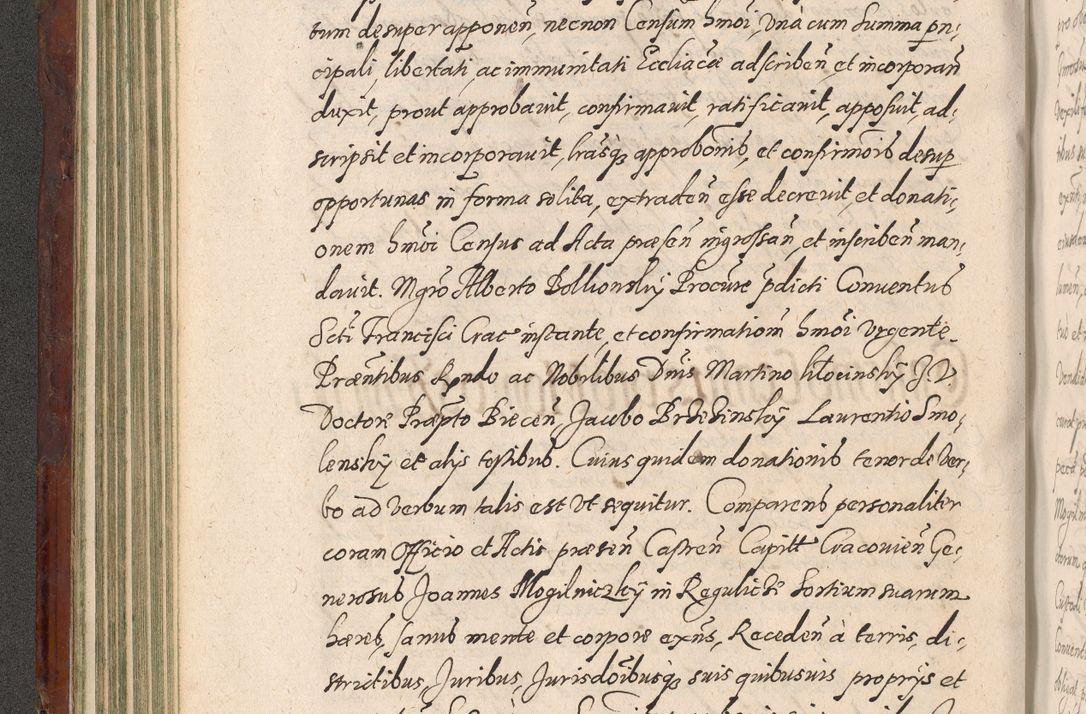 tum desuper apponeñ, necnon Censum hmõi, unà cum Summa prin:
cipali libertati, ac immunitati Eccliacæ adscribeñ et incorporañ
duxit, prout approbavit, confirmavit, ratificavit, apposuit, ad:
scripsit et incorporavit, lrãsq; approbõnis, et confirmõis desup
opportunas in forma solita, extradeñ esse decrevit, et donati:
onem hmõi Census ad Acta præseñ ingrossañ, et inscribeñ man:
davit. Mgro Alberto Bollionskij Procure pdicti Conventus
Scti Francisci Crac instante, et confirmationem hmõi urgente.
Præñtibus Rndo ac Nobilibus Dnis Martino Kłocinskij J. V.
Doctore Præpto Bieceñ, Jacobo Brzezinskij Laurentio Smo:
lenskij et alijs testibus. Cuius quidem donationis tenor de ver:
bo ad verbum talis est ut sequitur. Comparens personaliter
coram Officio et Actis præseñ Castreñ Capitt Cracovieñ Ge:
nerosus Joannes Mogilniczkij in Regulice Sortium suarum
hæres, sanus mente et corpore exñs, Recedeñ à terris, di:
strictibus, Juribus, Jurisdõibusq; suis quibusvis proprijs et